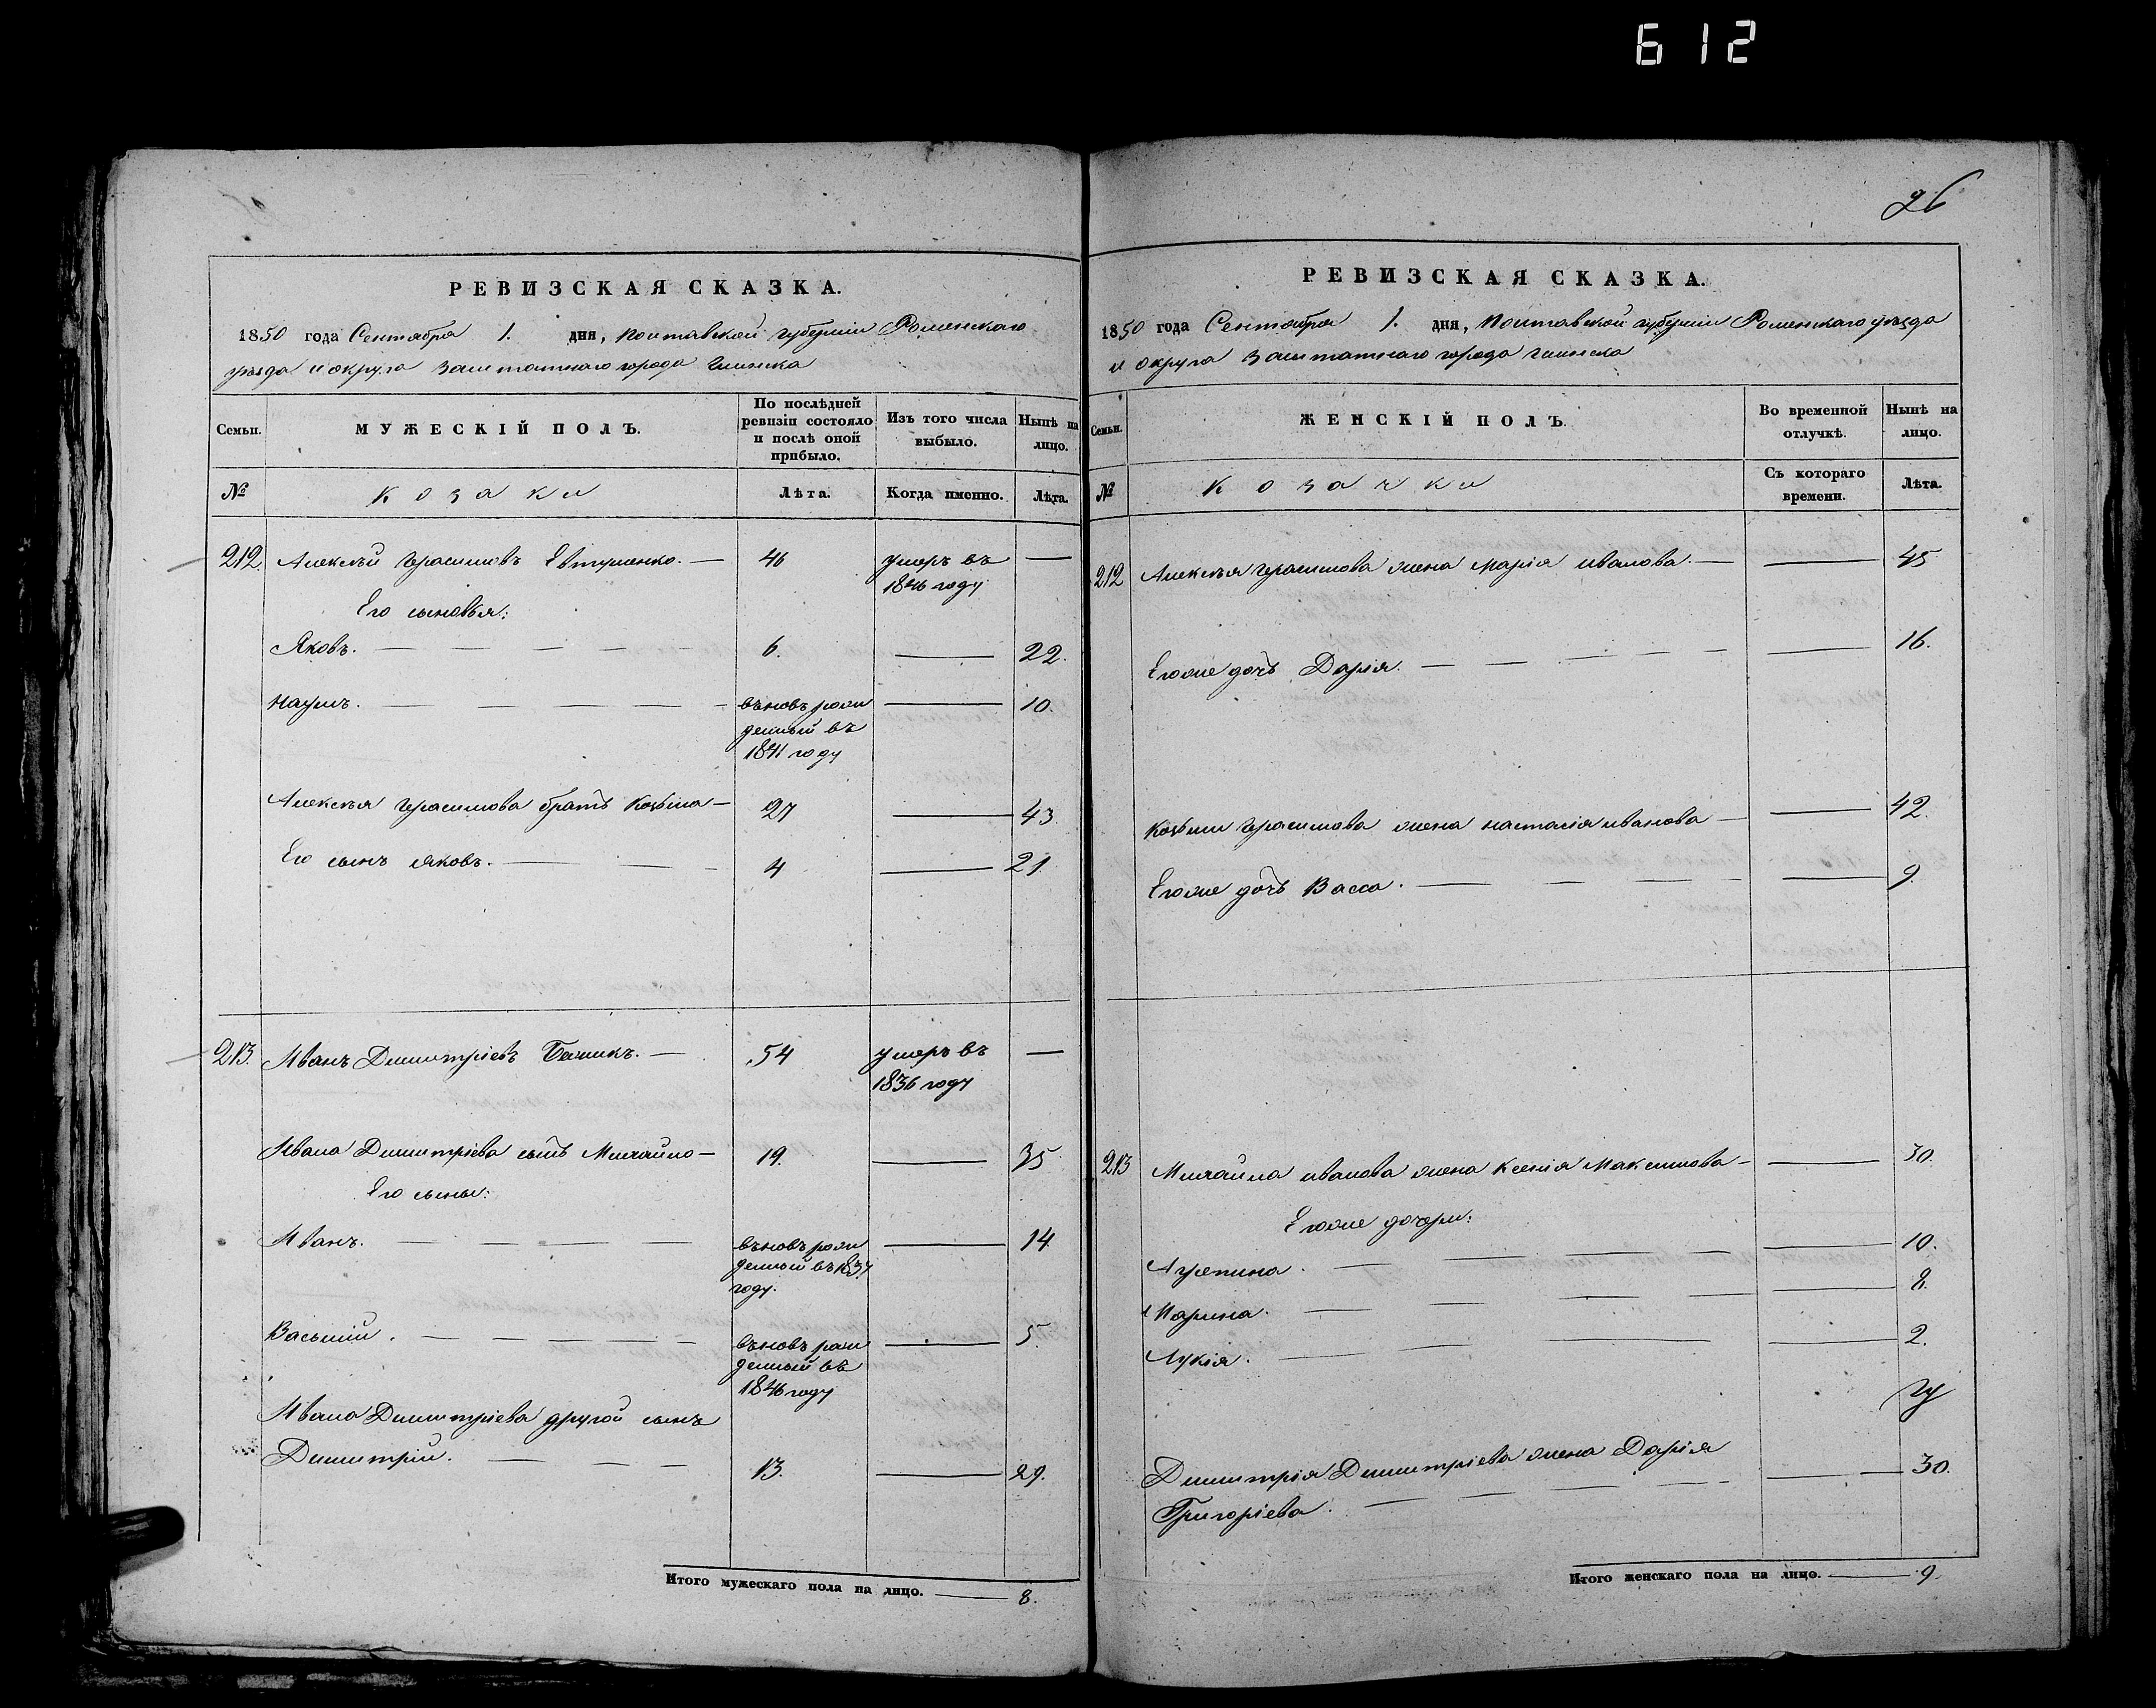 612
РЕВИЗСКАЯ СКАЗКА.
1850 года Сентября 1. дня, Полтавской губерніи Роменскаго
уѣзда и округа заштатнаго города Глинска
Семьи.
МУЖЕСКІЙ ПОЛЪ.
По послѣдней ревизіи состояло и послѣ оной прибыло.
Изъ того числа выбыло.
Нынѣ на лицо.
№
Козаки
Лѣта.
Когда именно.
Лѣта.
212. Алексѣй Герасимовъ Евтушенко. — 46 умеръ въ —
1846 году
Его сыновья:
Яковъ. 6. — 22.
Наумъ. вновь рож — 10.
денный въ
1841 году
Алексѣя Герасимова братъ Козьма — 27 — 43.
Его сынъ Яковъ. 4 — 21
213. Иванъ Димитріевъ 54 умеръ въ —
1836 году
Ивана Димитріева сынъ Михайло — 19. — 35
Его сыны:
Иванъ. вновь рож — 14.
денный въ 1837
году.
Василій. вновь рож — 5.
денный въ
1846 году
Ивана Димитріева другой сынъ
Димитрій. 13. — 29.
Итого мужескаго пола на лицо. — 8.
26
РЕВИЗСКАЯ СКАЗКА.
1850 года Сентября 1. дня, Полтавской губерніи Роменскаго уѣзда
и округа заштатнаго города Глинска
Семьи.
ЖЕНСКІЙ ПОЛЪ.
Во временной отлучкѣ.
Нынѣ на лицо.
№
Козачки
Съ котораго времени.
Лѣта.
212 Алексѣя Герасимова жена Марія Иванова. — 45
Его же дочь Дарія. — 16.
Козьмы Герасимова жена Настасія Иванова — 42.
Его же дочь Васса. — 9.
213 Михайла Иванова жена Ксенія Максимова — 30.
Его же дочери:
Агрепина. — 10.
Марина. — 8.
Лукія. — 2.
Димитрія Димитріева жена Дарія
Григоріева. — 30.
Итого женскаго пола на лицо. — 9.